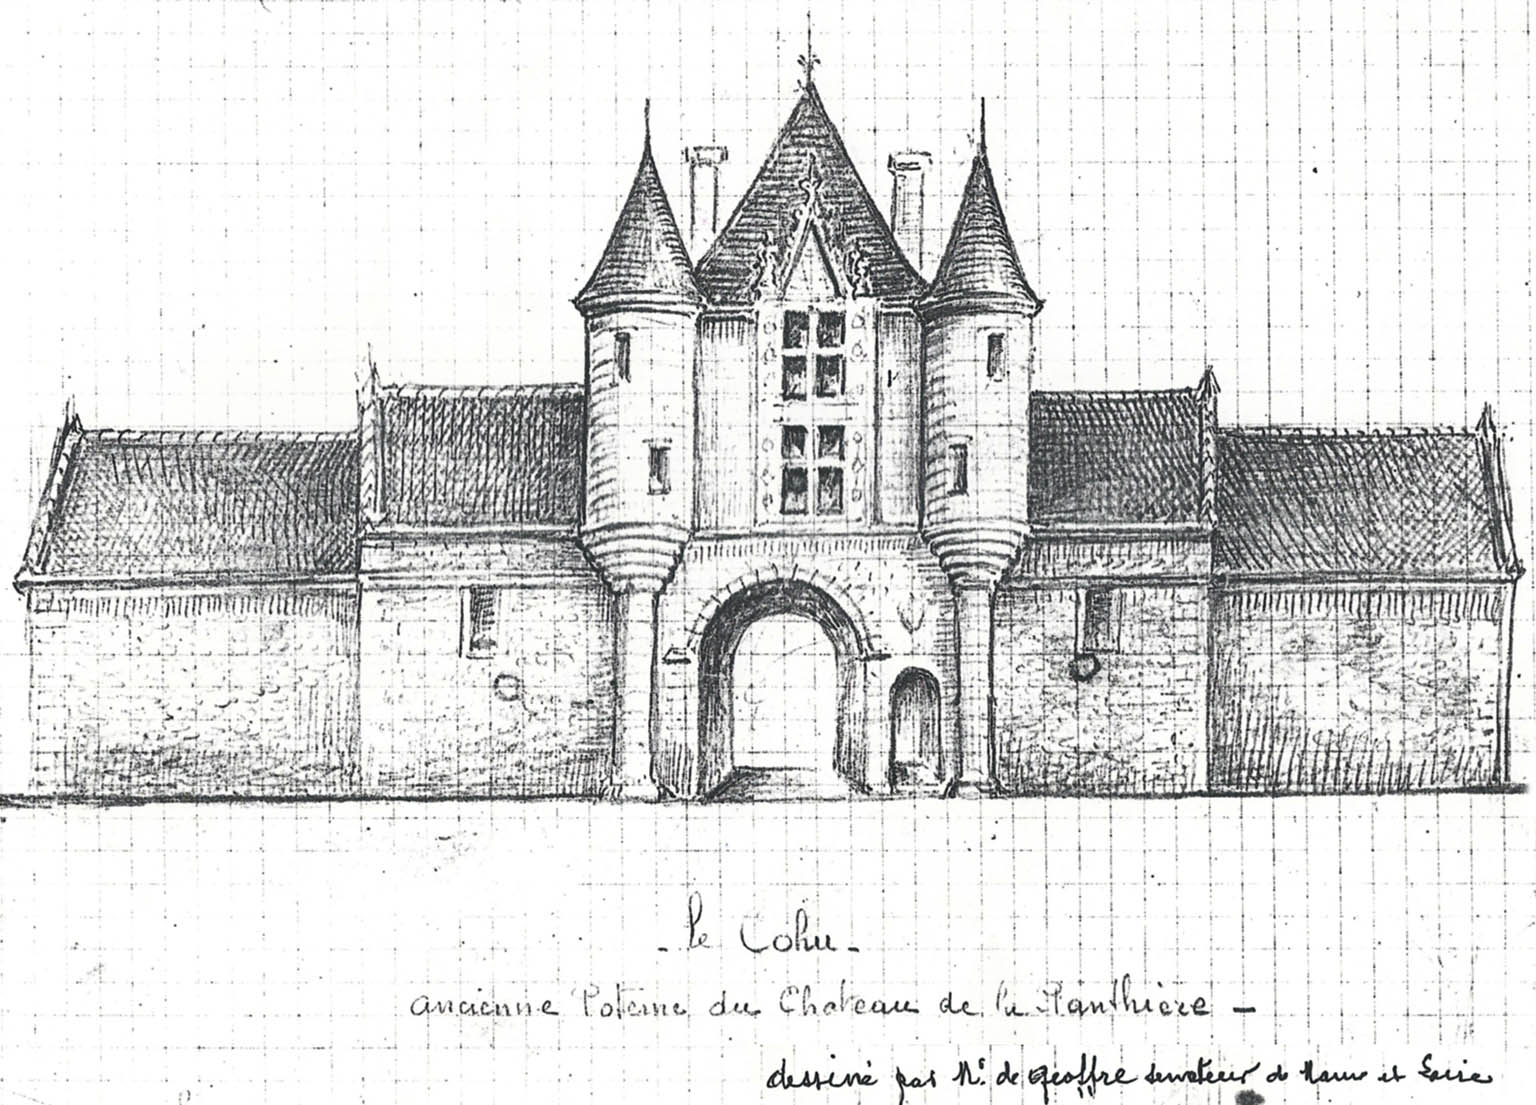 - le Cohu -
ancienne Poterne du Chateau de la Planthière -
dessiné par Mr de Geoffre senateur de Maine et Loire